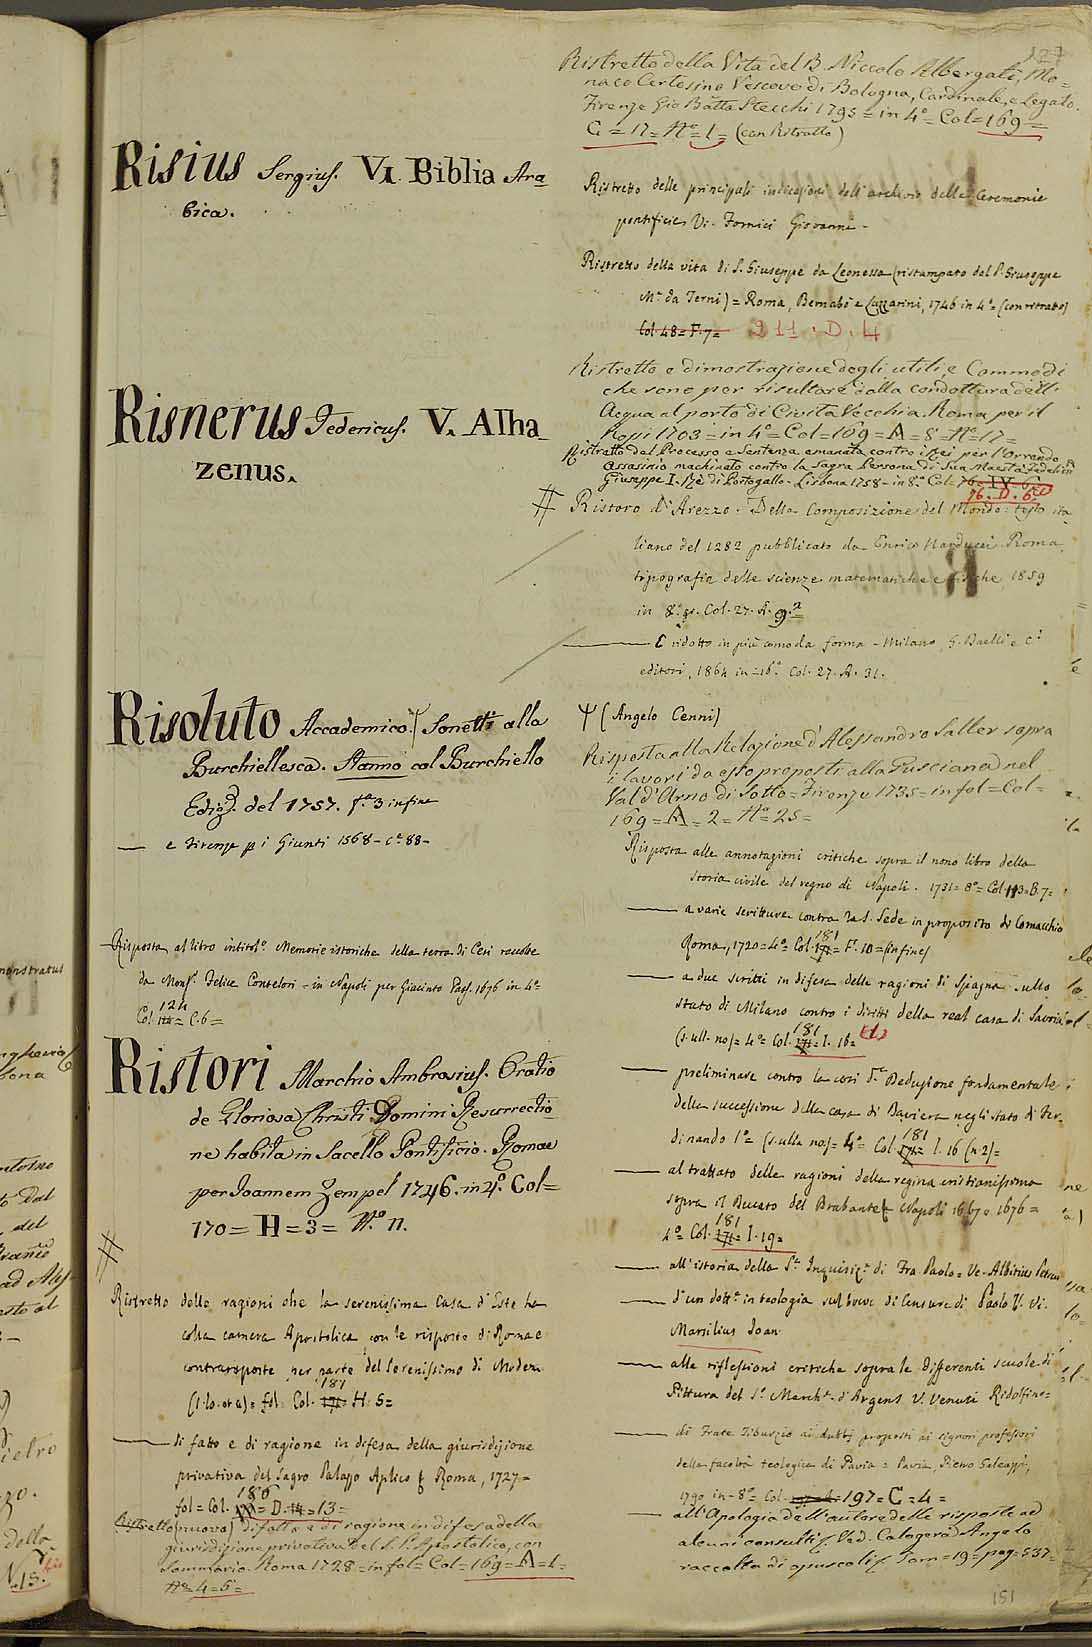 Risius Sergius. V. Biblia Ara
bica.
Risnerus Federicus. V. Alha
zenus.
Risoluto Accademico. Ψ Sonetti alla
Burchiellesca. Stanno col Burchiello
Ediz. del 1757. f.a 3 in fine
— e Firenze pi Giunti 1568 - C.a 88 -
Risposta al litro intitol.o Memorie istoriche della terra di Cesi raccolte
da Mons. Felice Contelori - in Napoli per Giacinto Pass. 1676 in 4.o
124
Col. = C. 6 =
Ristori Marchio Ambrosius. Oratio
de Gloriosa Christi Domini Resurrectio
ne habita in Sacello Pontificio. Romae
per Joannem Zempel 1746. in 4.o Col=
170 = H = 3 = N.o 11.
#
Ristretto delle ragioni che la serenissima Casa d'Este ha
colla camera Apostolica con le risposte di Roma e
contrarisposte per parte del serenissimo di Modena
181
= fol: Col. 171 = H. 5=
— di fatto e di ragione in difesa della giurisdizione
privativa del Sagro Palazzo Aplico Roma, 1727 =
186
fol = Col. = D. = 13 =
Ristretto (nuovo) di fatto e di ragione in difesa della
giurisdizione privativa del S. P. Apostolico, con
Sommario. Roma 1728 = in fol = Col = 169 = A = 1 =
N.o 4 = 5 =
127
Ristretto della Vita del B. Niccolo Albergati, Mo=
naco Certosino Vescovo di Bologna, Cardinale, e Legato.
Firenze Gio Batta Stecchi 1795 = in 4.o = Col = 169 =
C = 17 = N.o 1 = (con Ritratto)
Ristretto delle principali indicazioni dell'archivio delle Ceremonie
pontificie, Vi. Fornici Giovanni -
Ristretto della vita di S. Giuseppe da Leonessa (ristampato dal P. Giuseppe
M.a da Terni) = Roma, Bernabò e Lazzarini, 1746 in 4.o = (con ritratto)
Col 48 = F. 7 = 211 . D. 4
Ristretto e dimostrazione degli utili, e Commodi
che sono per risultare dalla condottura dell'
Acqua al porto di Civita Vecchia. Roma per il
Rossi 1703 = in 4.o = Col = 169 = A = 8 = N.o 17 =
Ristretto del Processo e Sentenza emanata contro i Rei per l'Orrendo
Assasinio machinato contro la Sagra Persona di Sua Maestà Fedeliss.a
Giuseppe I. Rè di Portogallo - Lisbona 1758 - in 8.o Col = 76 = IV = 6
76. D. 6.
# Ristoro d'Arezzo. Della Composizione del Mondo: testo ita
liano del 1282 pubblicato da Enrico Narducci. Roma,
tipografia delle scienze matematiche e fisiche, 1859
in 8.o gr. Col. 27. A. 9.a
— E ridotto in più comoda forma - Milano, G. Daelli e C.i
editori, 1864 in = 16.o Col. 27. A. 31.
Ψ (Angelo Cenni)
Risposta alla Relazione d'Alessandro Saller sopra
i lavori da esso proposti alla Gusciana nel
Val d'Arno di Sotto = Firenze 1735 = in fol = Col =
169 = A = 2 = N.o = 25 =
Risposta alle annotazioni critiche sopra il nono libro della
storia civile del regno di Napoli. 1731 = 8.o = Col. 113 = B. 7 =
— a varie scritture contra la S. Sede in proposito di Comacchio
181
Roma, 1720 = 4.o Col. 171 = F. 10 = (in fine)
— a due scritti in difesa delle ragioni di Spagna sullo
stato di Milano contro i diritti della real casa di Savoia
181
(s. ull. no) = 4.o = Col. 171 = I. 16 =
— preliminare contro la così d.a Deduzione fondamentale
della successione della casa di Baviera negli stati di Fer-
181
dinando 1.o = (s. ulla no) = 4.o = Col 171 = I. 16 (n. 2) =
— al trattato delle ragioni della regina cristianissima
sopra il Ducato del Brabante Napoli 1667 e 1676 =
181
4.o = Col. 171 = I. 19 =
— all'istoria della S.a Inquisiz.e di Fra Paolo = Ve. Albitius
— d'un dott.e in teologia sul breve di Censure di Paolo V. Vi.
Marsilius Joan
— alle riflessioni critiche sopra le differenti scuole di
Pittura del S.r March.e d'Argens V. Venuti Ridolfino =
— di Frate Tiburzio ai dubbj proposti ai signori professori
della facoltà teologica di Pavia = Pavia, Pietro Galeazzi,
1790 in = 8.o = Col. 197 = C = 4 =
— all'Apologia dell'autore delle risposte ad
alcuni consulti. Ved. Calogerà Angelo
raccolta di opuscoli. Tom = 19 = pag = 537 =
151